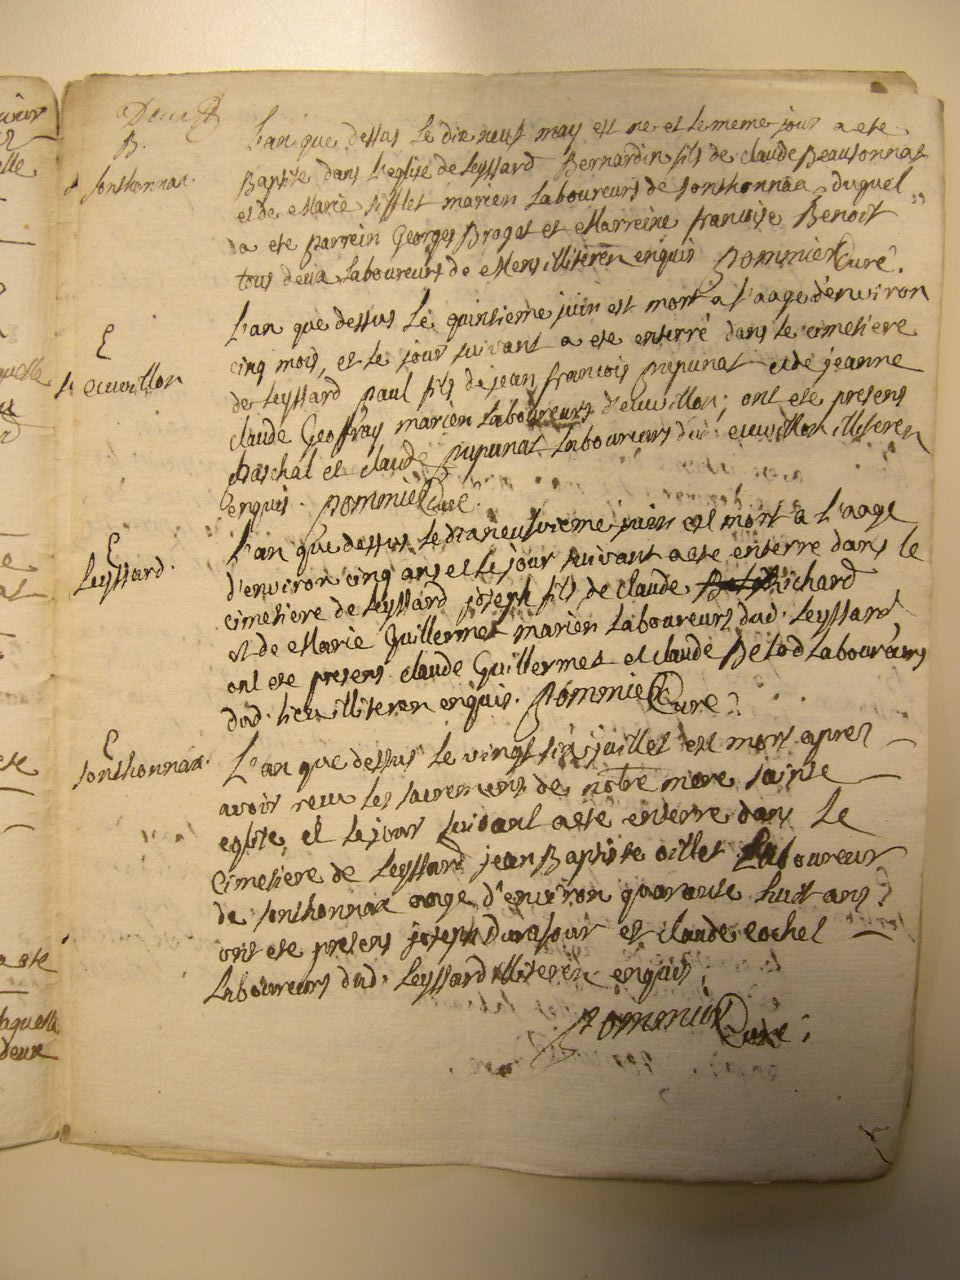 B.
sonthonnax.
L'an que dessus le dix neuf may est ne et le meme jour a ete
Baptise dans l'eglise de Leyssard Bernardin fils de claude Beausonnas
et de Marie sifflet marien Laboureurs de sonthonnax, duquel
a ete parrein Georges Braget et Marreine francoise Benoit
tous deux Laboureurs de Mens illiteren enquis pommier Curé.
E
euvillon
L'an que dessus Le quinsieme juin est mort a l'aage d'environ
cinq mois, et le jour suivant a ete enterré dans le cimetiere
de Leyssard paul fils de jean francois pupunat et de jeanne
claude Geoffray mariën Laboureurs d'euvillon; ont ete presens
paschal et claude pupunat Laboureurs dud. euvillon illiteren
enquis. pommier Curé.
E
Leyssard.
L'an que dessus le dixneufvieme juin est mort a l'aage
d'environ cinq ans et le jour suivant a ete enterre dans le
cimetiere de Leyssard joseph fils de claude Richard
et de Marie Guillermet marien Laboureurs dud. Leyssard,
ont ete presens claude Guillermet et claude Belod Laboureurs
dud. lieu illiteren enquis. pommier Curé.
E
sonthonnax.
L'an que dessus le vingt six juillet est mort apres
avoir recu les sacremens de notre mere sainte
eglise, et le jour suivant a ete enterre dans le
cimetiere de Leyssard jean Baptiste oillet Laboureur
de sonthonnax aage d'environ quarante huit ans.
ont ete presens joseph Durafour et claude cochet
Laboureurs dud. Leyssard illiteren enquis.
pommier Curé.